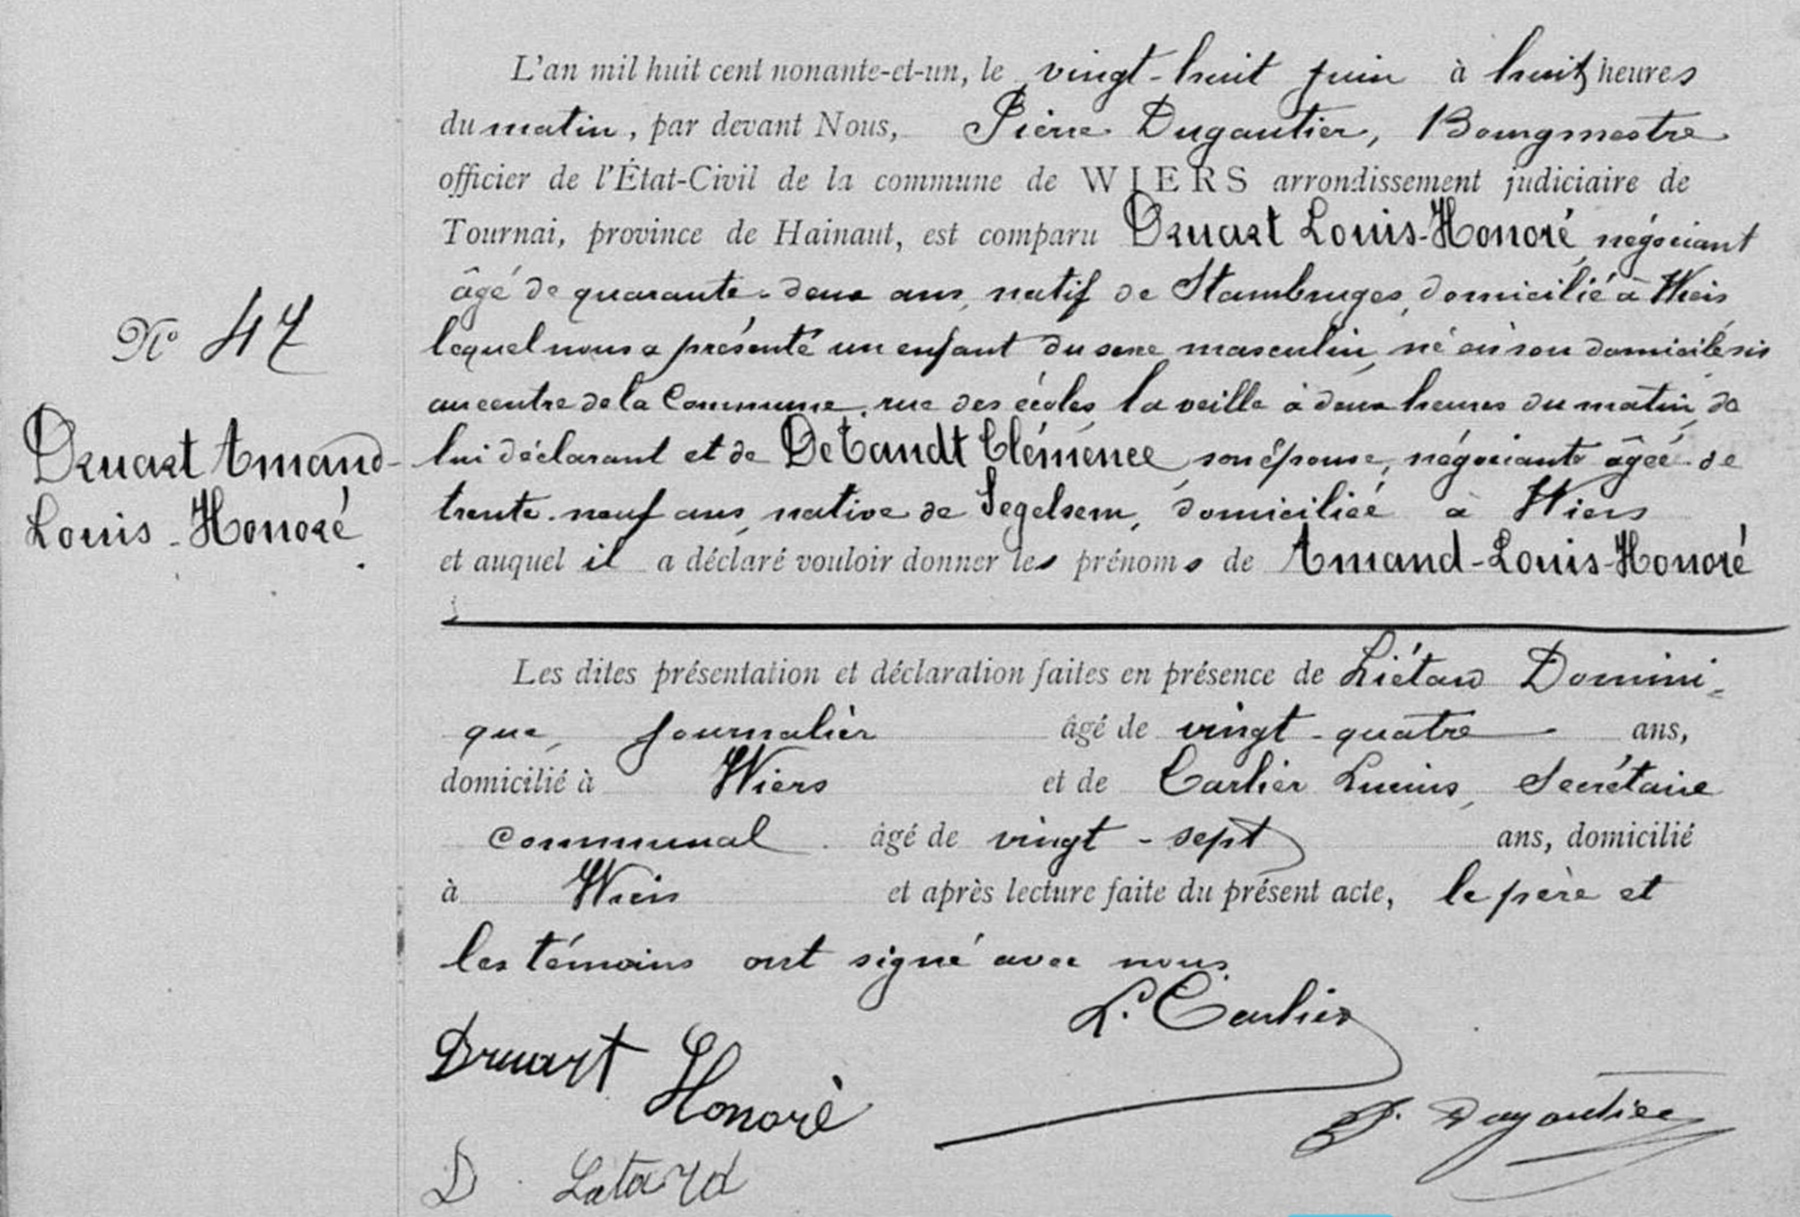 L'an mil huit cent nonante-et-un, le vingt-huit juin à huit heures
du matin, par devant Nous, Pierre Dugautier, Bourgmestre
officier de l'État-Civil de la commune de WIERS arrondissement judiciaire de
Tournai, province de Hainaut, est comparu Druart Louis-Honoré, négociant
âgé de quarante-deux ans, natif de Stambruges, domicilié à Wiers,
lequel nous a présenté un enfant du sexe masculin, né en son domicile sis
au centre de la Commune, rue des écoles, la veille à deux heures du matin, de
lui déclarant et de DeTandt Clémence, son épouse, négociante âgée de
trente-neuf ans, native de Segelsem, domiciliée à Wiers
et auquel il a déclaré vouloir donner les prénoms de Amand-Louis-Honoré
Nº 47
Druart Amand-
Louis-Honoré.
Les dites présentation et déclaration faites en présence de Liétard Domini-
que, journalier âgé de vingt-quatre ans,
domicilié à Wiers et de Carlier Lucius, Secrétaire
communal âgé de vingt-sept ans, domicilié
à Wiers et après lecture faite du présent acte, le père et
les témoins ont signé avec nous.
L. Carlier
Druart Honoré
P. Dugautier
D. Letard